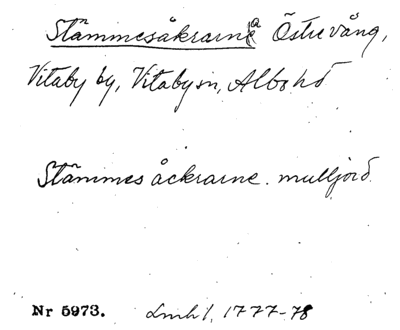 Stämmesåkrarna Östrevång,
Vitaby by, Vitaby sn, Albo hd
Stämmes åckrarne. mulljord.
Nr 5973. Lmh 1, 1777-78